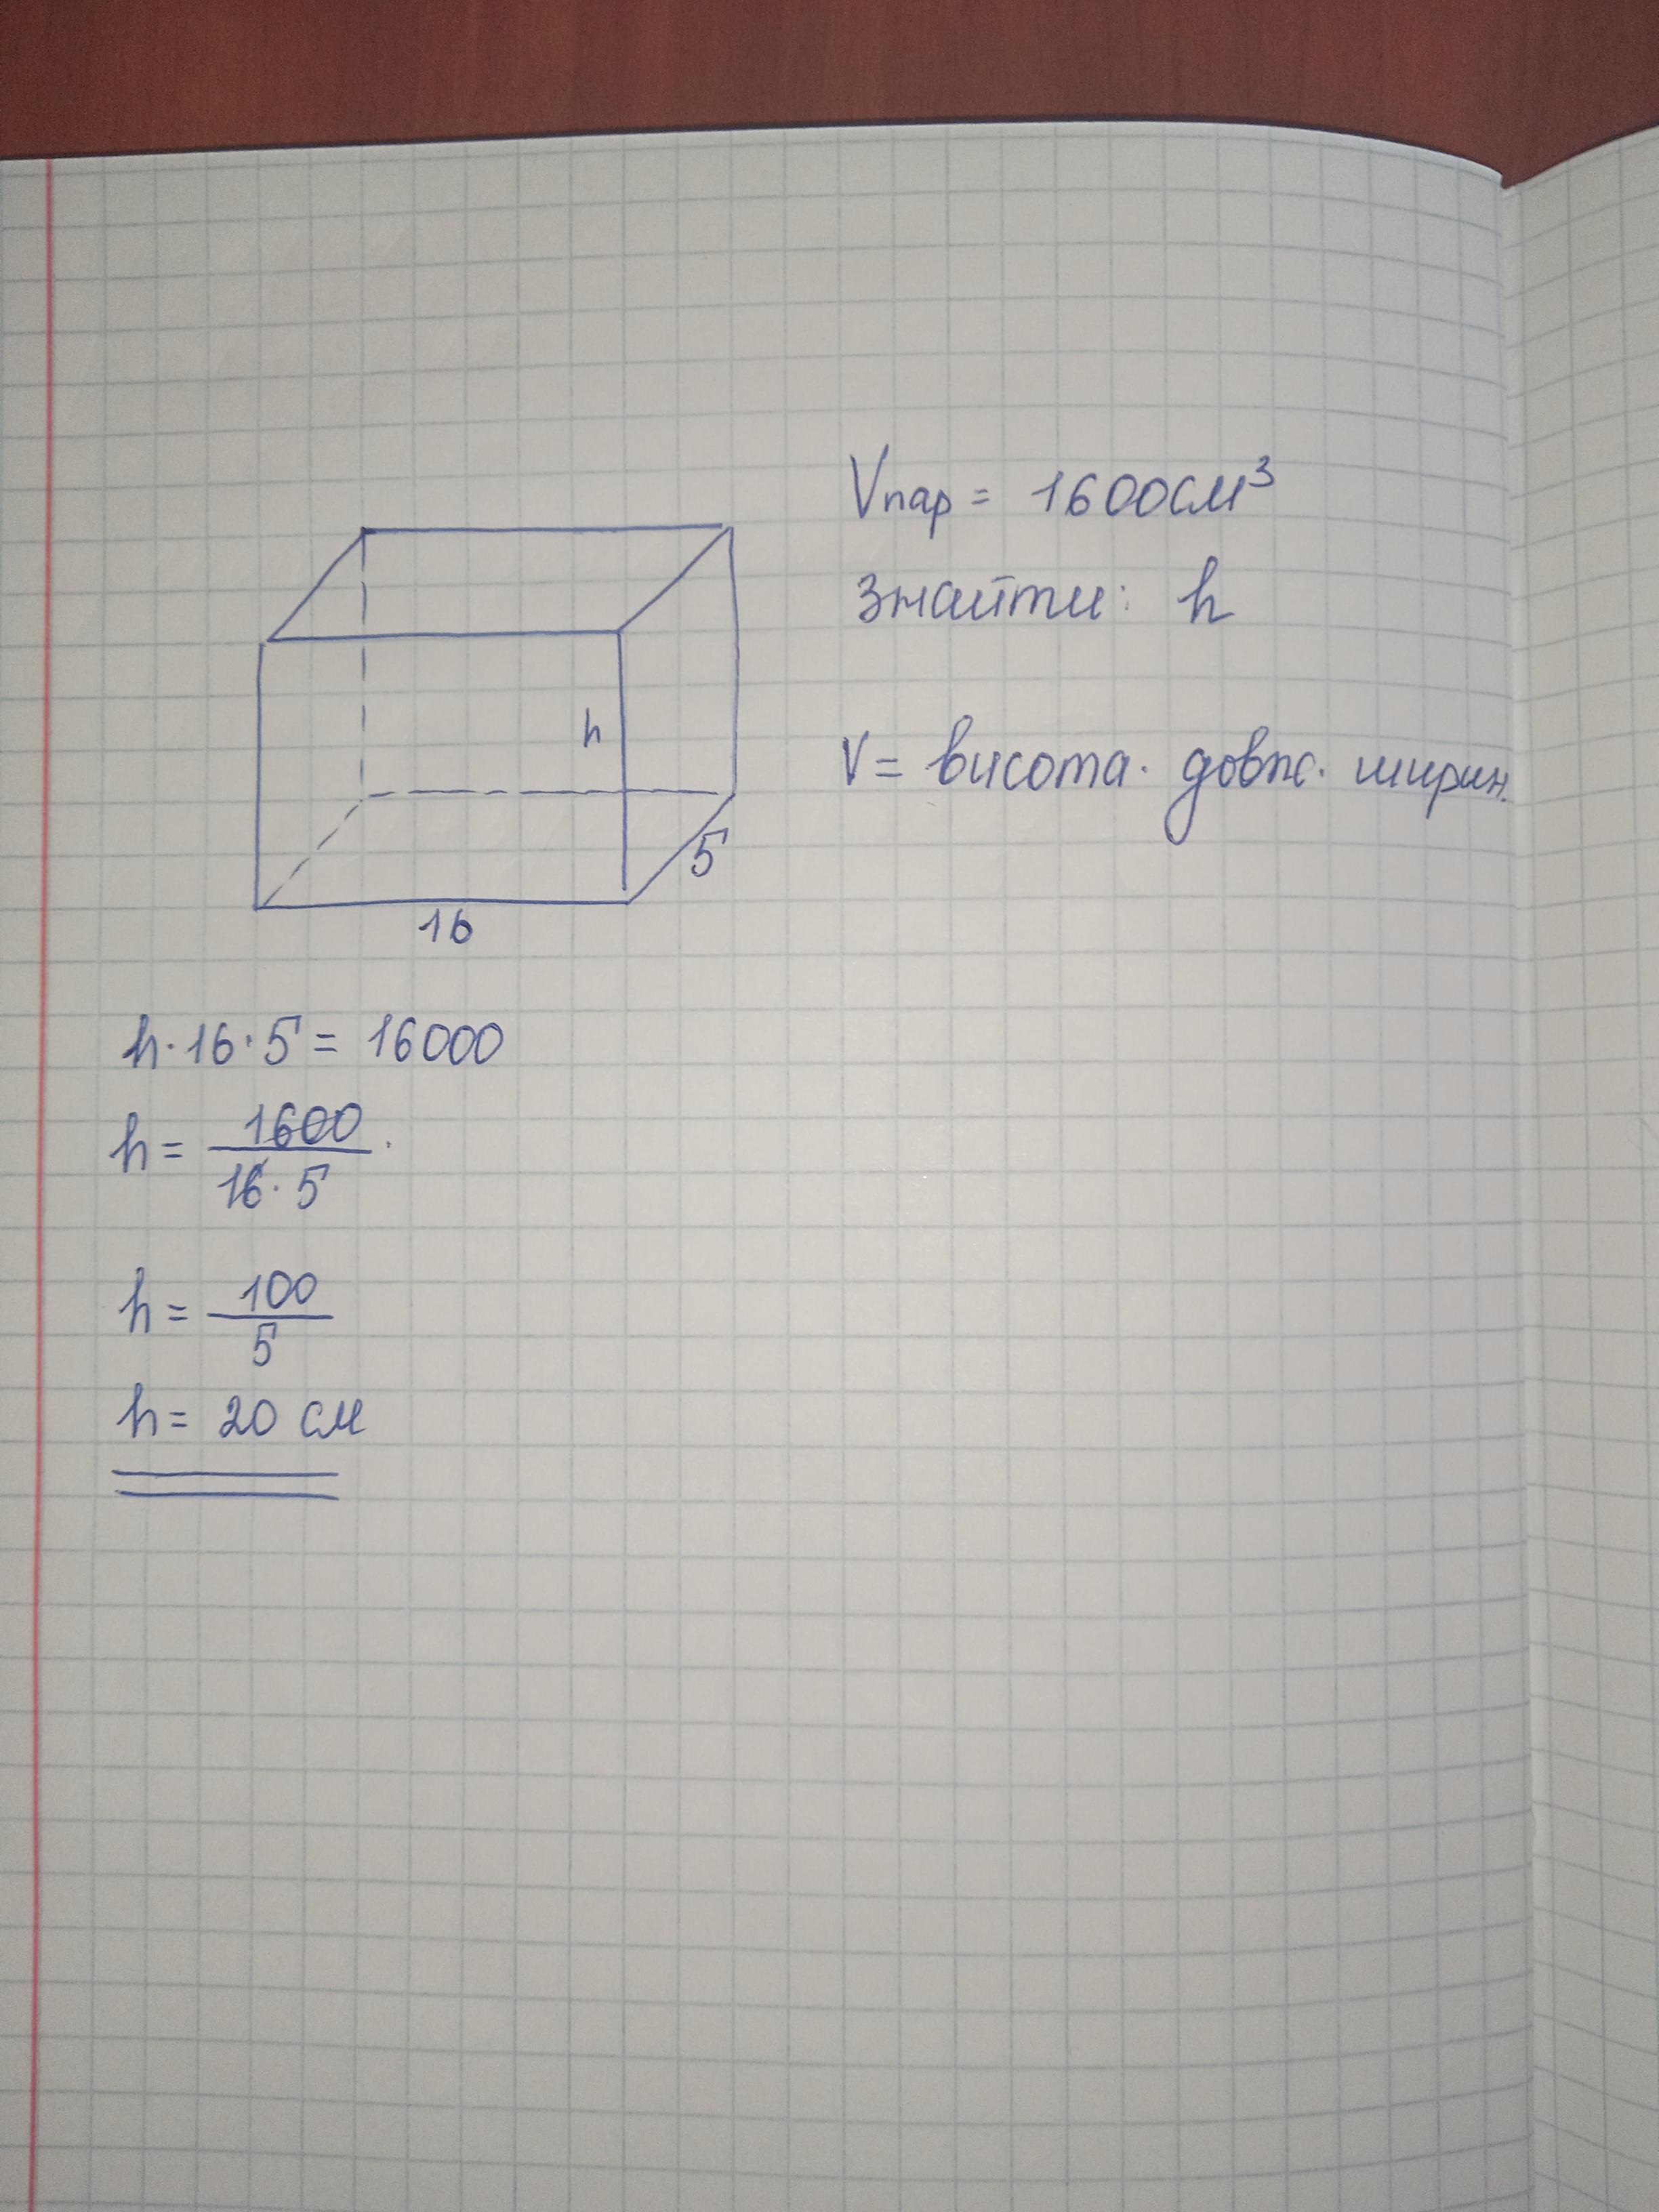 Vпар = 1600см³
знайти: h
h
V = висота · довж. ширин.
5
16
h · 16 · 5 = 16000
h = 1600 / 16 · 5
h = 100 / 5
h = 20 см